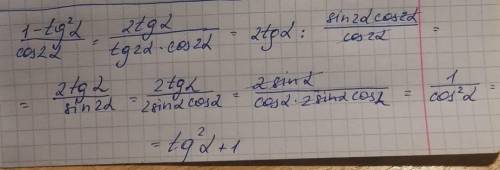 (1-tg²α)/(cos2α) = (2tgα)/(tg2α · cos2α) = 2tgα : (sin2α cos2α)/(cos2α) =
= (2tgα)/(sin2α) = (2tgα)/(2sinα cosα) = (2sinα)/(cosα · 2sinα cosα) = 1/(cos²α) =
= tg²α + 1